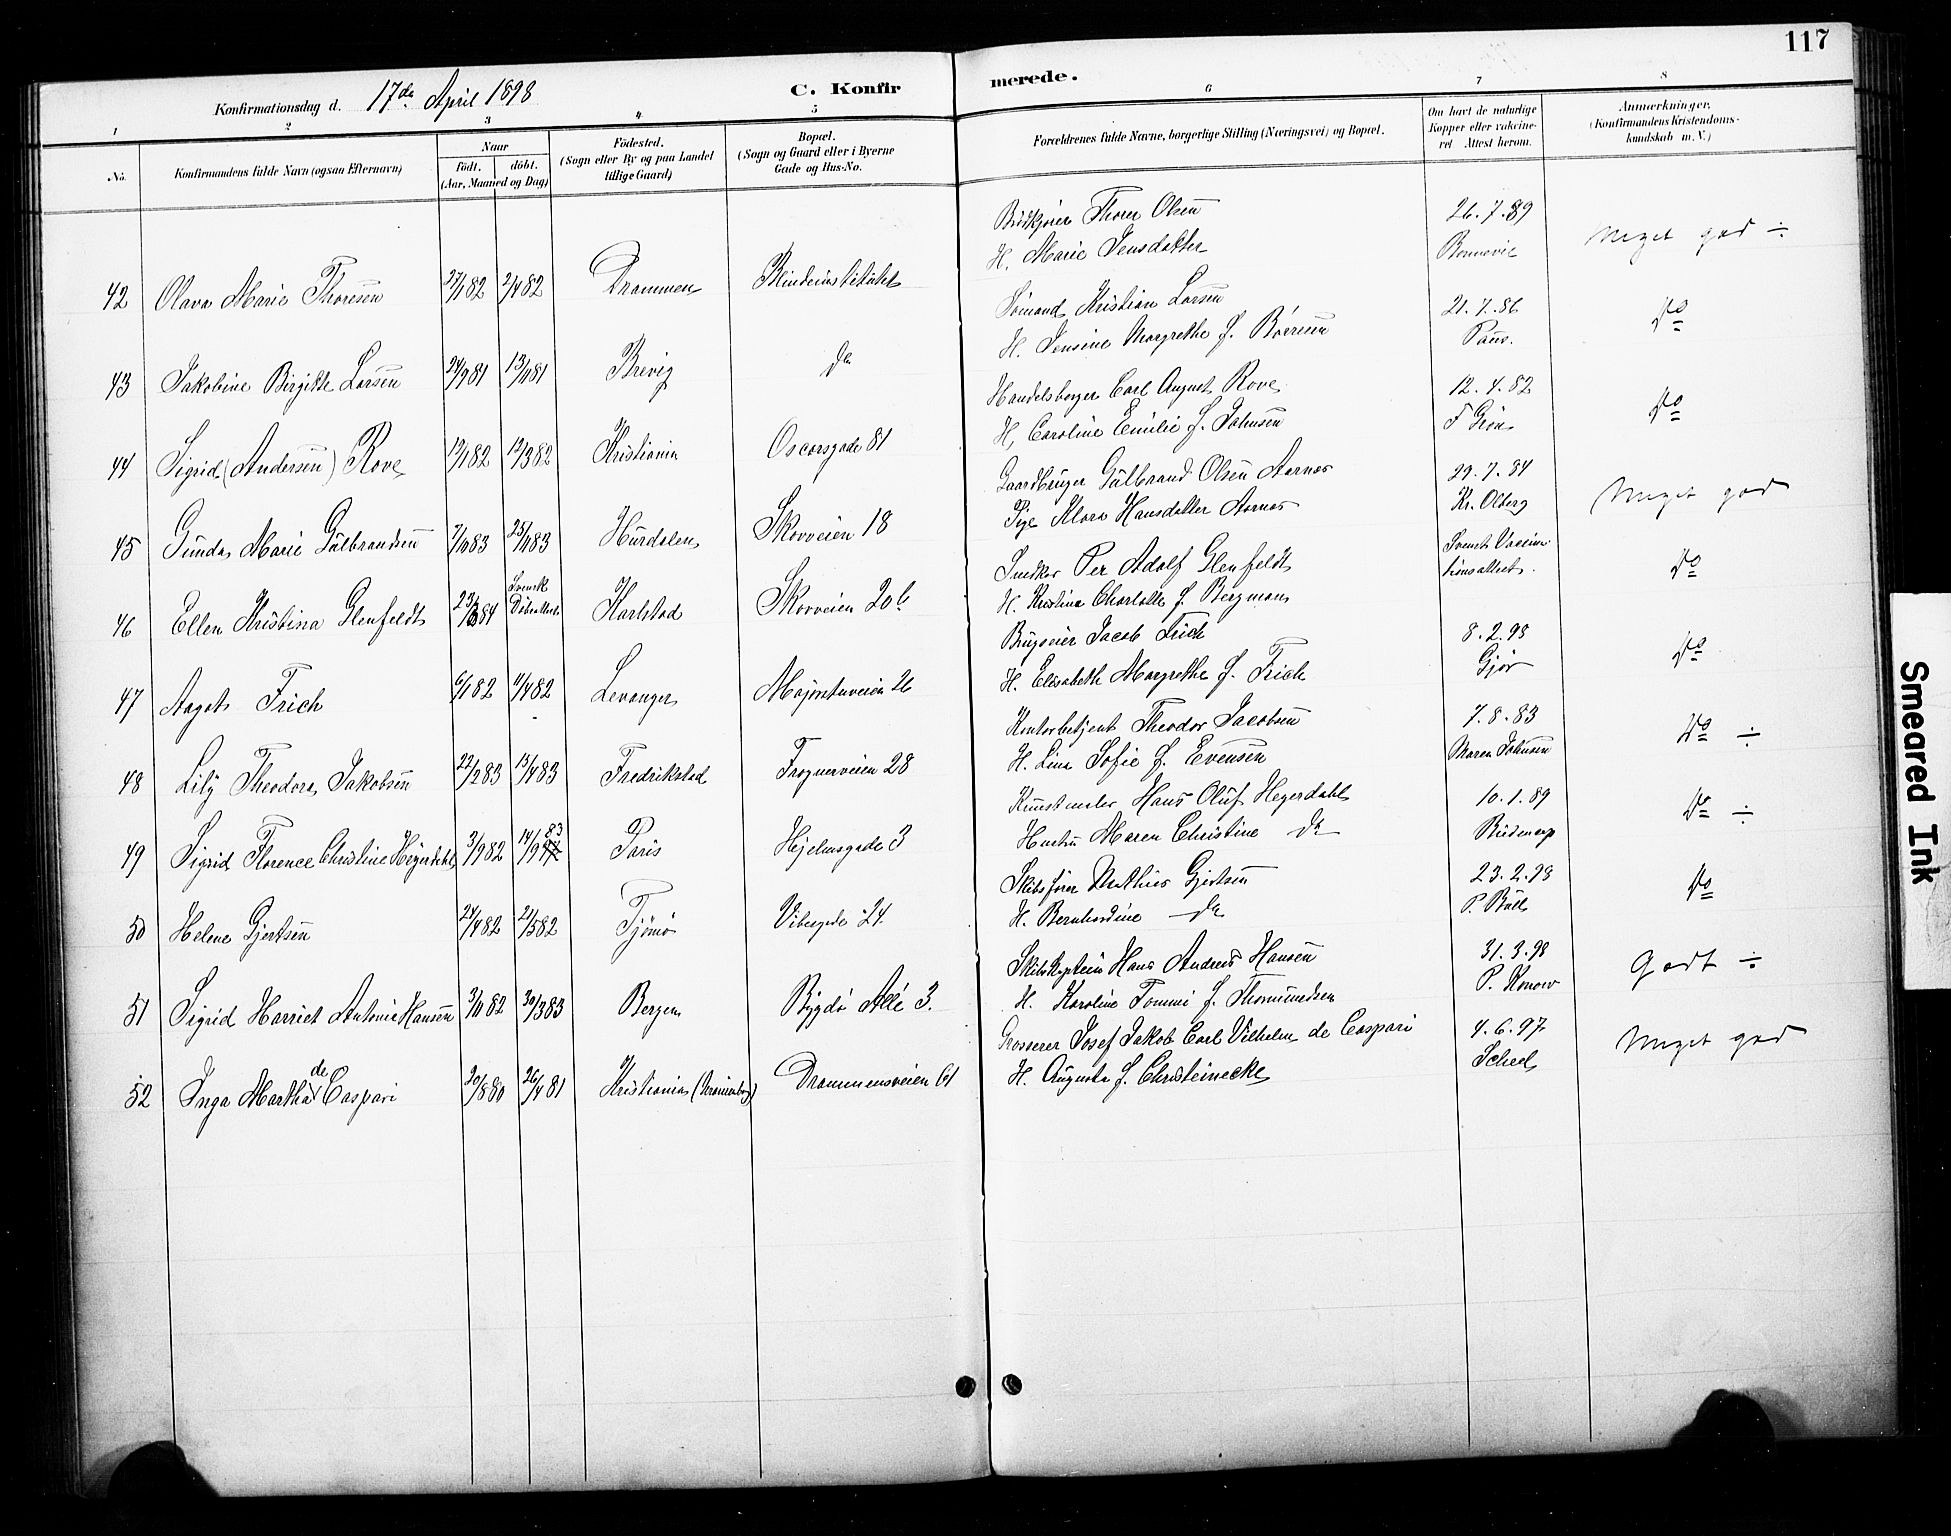 117
Konfirmationsdag d. 17de April 1898
C. Konfirmerede.
1 2 3 4 5 6 7 8
No.
Konfirmandens fulde Navn (ogsaa Efternavn)
Naar
født. døbt.
(Aar, Maaned og Dag)
Fødested.
(Sogn eller By og paa Landet
tillige Gaard)
Bopæl.
(Sogn og Gaard eller i Byerne
Gade og Hus-No.
Forældrenes fulde Navne, borgerlige Stilling (Næringsvei) og Bopæl.
Om havt de naturlige
Kopper eller vakcine-
ret Attest herom.
Anmærkninger.
(Konfirmandens Kristendoms-
kundskab m. V.)
42 Olava Marie Thoresen 27/1 82 2/4 82 Drammen Blindeinstitutet
Brødkjører Thorer Olsen 26.7.89
H. Marie Jensdatter Bonnevie Meget god ÷
43 Jakobine Birgitte Larsen 24/9 81 13/11 81 Brevig do
Sømand Kristian Larsen 21.7.86
H. Jensine Margrethe f. Børresen Paus. do
44 Sigrid (Andersen) Rove 12/1 82 12/3 82 Kristiania Oscarsgade 81
Handelsborger Carl August Rove 12.4.82
H. Caroline Emilie f. Johnsen F Grøn do
45 Gunda Marie Gulbrandsen 7/10 83 25/11 83 Hurdalen Skovveien 18
Gaardbruger Gulbrand Olsen Aarnes 29.7.84
Pige Klara Hansdatter Aarnes Kr. Olberg Meget god
46 Ellen Kristina Glenfeldt 23/3 84 Svensk Døbeattest Karlstad Skovveien 20b
Snedker Per Adolf Glenfeldt Svensk Vaccina-
H. Kristina Charlotte f. Bergman tionsattest. do
47 Aagot Frich 6/1 82 11/4 82 Levanger Majorstuveien 26
Brugseier Jacob Frich 8.2.98
H. Elisabeth Margrethe f. Frich Gjør do
48 Lily Theodora Jakobsen 22/2 83 15/4 83 Fredrikstad Frognerveien 28
Kontorbetjent Theodor Jacobsen 7.8.83
H. Lina Sofie f. Evensen Maren Johnsen do ÷
49 Sigrid Florence Christine Heyerdahl 3/9 82 14/9 83 Paris Hjelmsgade 3
Kunstmaler Hans Oluf Heyerdahl 10.1.89
Hustru Maren Christine do do ÷
50 Helene Gjertsen 24/4 82 21/5 82 Tjømø Vibesgade 24
Skibsfører Mathias Gjertsen 23.2.98
H. Bernhardine — do P. Bull do
51 Sigrid Harriet Antonie Hansen 3/11 82 30/3 83 Bergen Bygdø Allé 3.
Skibskaptein Hans Andreas Hansen 31.3.98
H. Karoline Tommi f. Thomundsen P. Konow Godt ÷
52 Inga Martha de Caspari 30/8 80 26/4 81 Kristiania (Uranienborg) Drammensveien 61
Grosserer Josef Jakob Carl Vilhelm de Caspari 4.6.97
H. Augusta f. Christeinecke Scheel Meget god
Smeared Ink